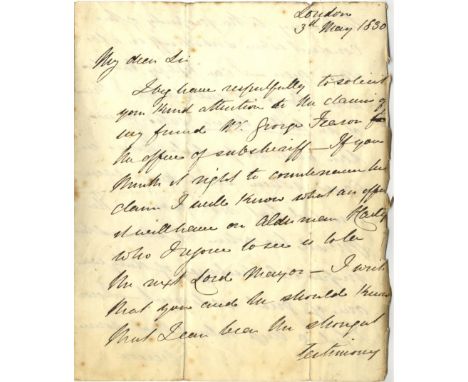 London
3d May 1830
My dear Sir
I beg leave respectfully to solicit
your kind attention to the claims of
my friend Mr. George Fearon for
the office of subsheriff - If you
think it right to countenance his
claim I well know what an effect
it will have on Alderman
who I rejoice to see is to be
the next Lord Mayor - I wish
that you and he should know
that I can bear the strongest
testimony